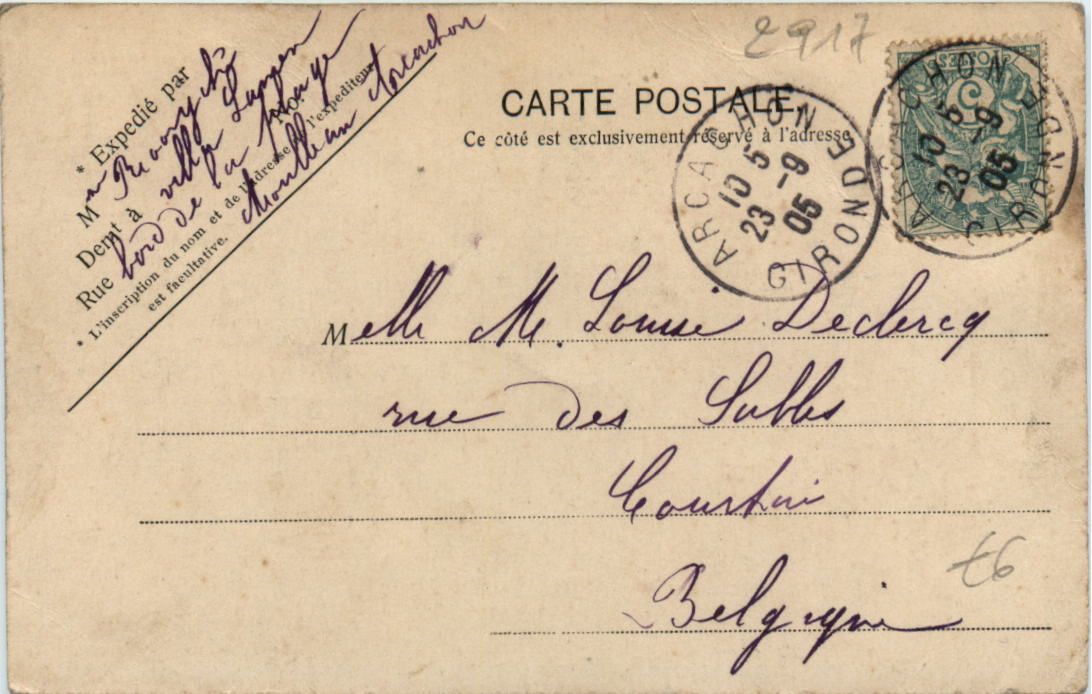 2917
CARTE POSTALE,
Ce côté est exclusivement réservé à l'adresse
* Expedié par
M
Demt à villa
Rue bord de la plage No.
* L'inscription du nom et de l'adresse de l'expediteur
est facultative. Moulleau Arcachon
ARCACHON
10 5
23 -9
05
GIRONDE
ARCACHON
10 5
23 -9
05
GIRONDE
Melle M. Louise Declercq
rue des Sables
Courtrai
Belgique
£6